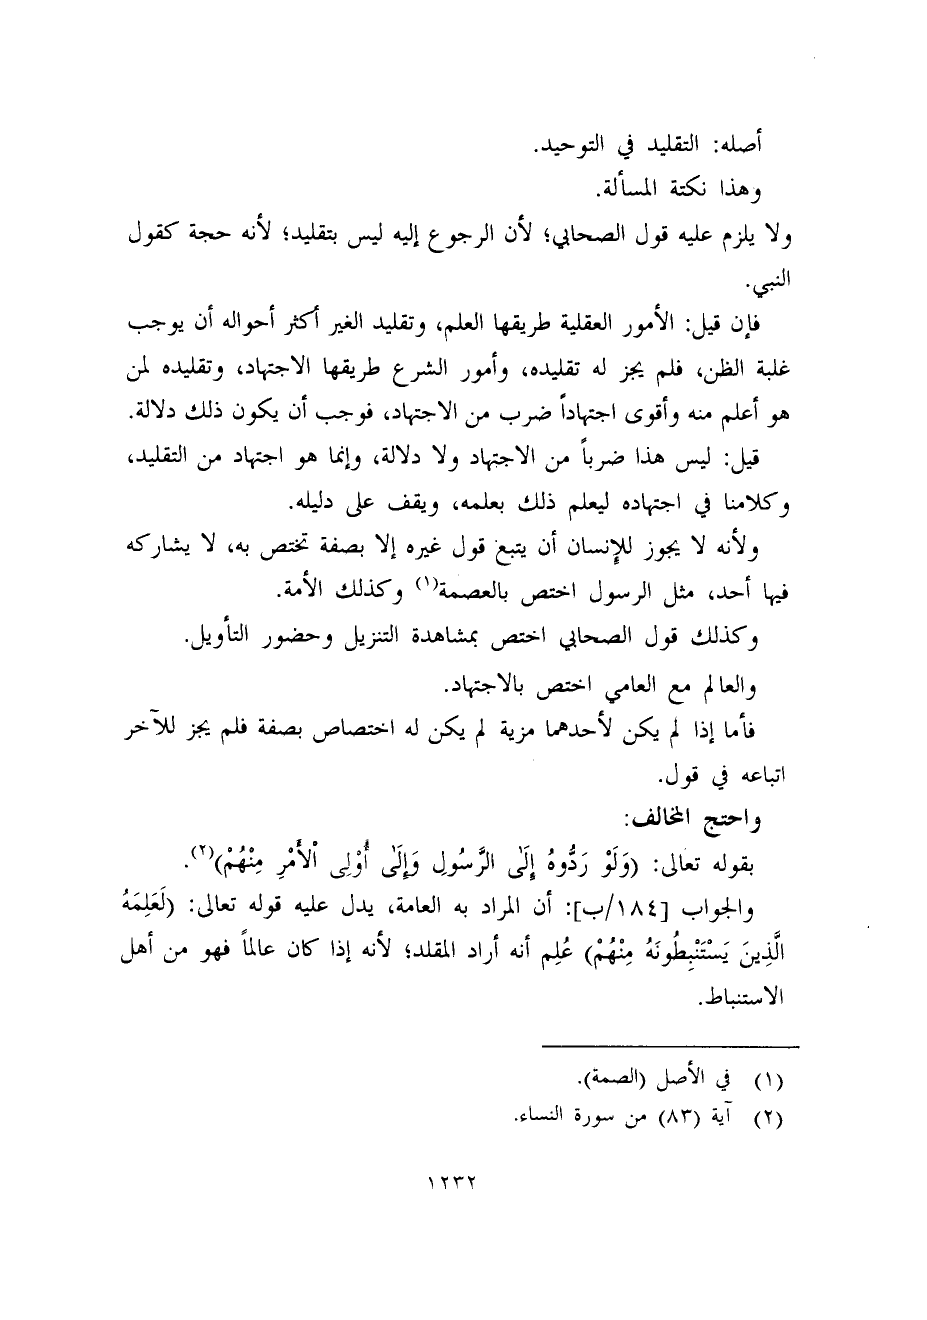 أصله: التقليد في التوحيد.
وهذا نكتة المسألة.
ولا يلزم عليه قول الصحابي؛ لأن الرجوع إليه ليس بتقليد؛ لأنه حجة كقول
النبي.
فإن قيل: الأمور العقلية طريقها العلم، وتقليد الغير أكثر أحواله أن يوجب
غلبة الظن، فلم يجز له تقليده، وأمور الشرع طريقها الاجتهاد، وتقليده لمن
هو أعلم منه وأقوى اجتهاداً ضرب من الاجتهاد، فوجب أن يكون ذلك دلالة.
قيل: ليس هذا ضرباً من الاجتهاد ولا دلالة، وإنما هو اجتهاد من التقليد،
وكلامنا في اجتهاده ليعلم ذلك بعلمه، ويقف على دليله.
ولأنه لا يجوز للإنسان أن يتبع قول غيره إلا بصفة تختص به، لا يشاركه
فيها أحد، مثل الرسول اختص بالعصمة(١) وكذلك الأمة.
وكذلك قول الصحابي اختص بمشاهدة التنزيل وحضور التأويل.
والعالم مع العامي اختص بالاجتهاد.
فأما إذا لم يكن لأحدهما مزية لم يكن له اختصاص بصفة فلم يجز للآخر
اتباعه في قول.
واحتج المخالف:
بقوله تعالى: (وَلَوْ رَدُّوهُ إِلَى الرَّسُولِ وَإِلَى أُوْلِى الْأَمْرِ مِنْهُمْ)(٢).
والجواب [١٨٤/ب]: أن المراد به العامة، يدل عليه قوله تعالى: (لَعَلِمَهُ
الَّذِينَ يَسْتَنْبِطُونَهُ مِنْهُمْ) عُلِم أنه أراد المقلد؛ لأنه إذا كان عالماً فهو من أهل
الاستنباط.
(١) في الأصل (الصمة).
(٢) آية (٨٣) من سورة النساء.
١٢٣٢